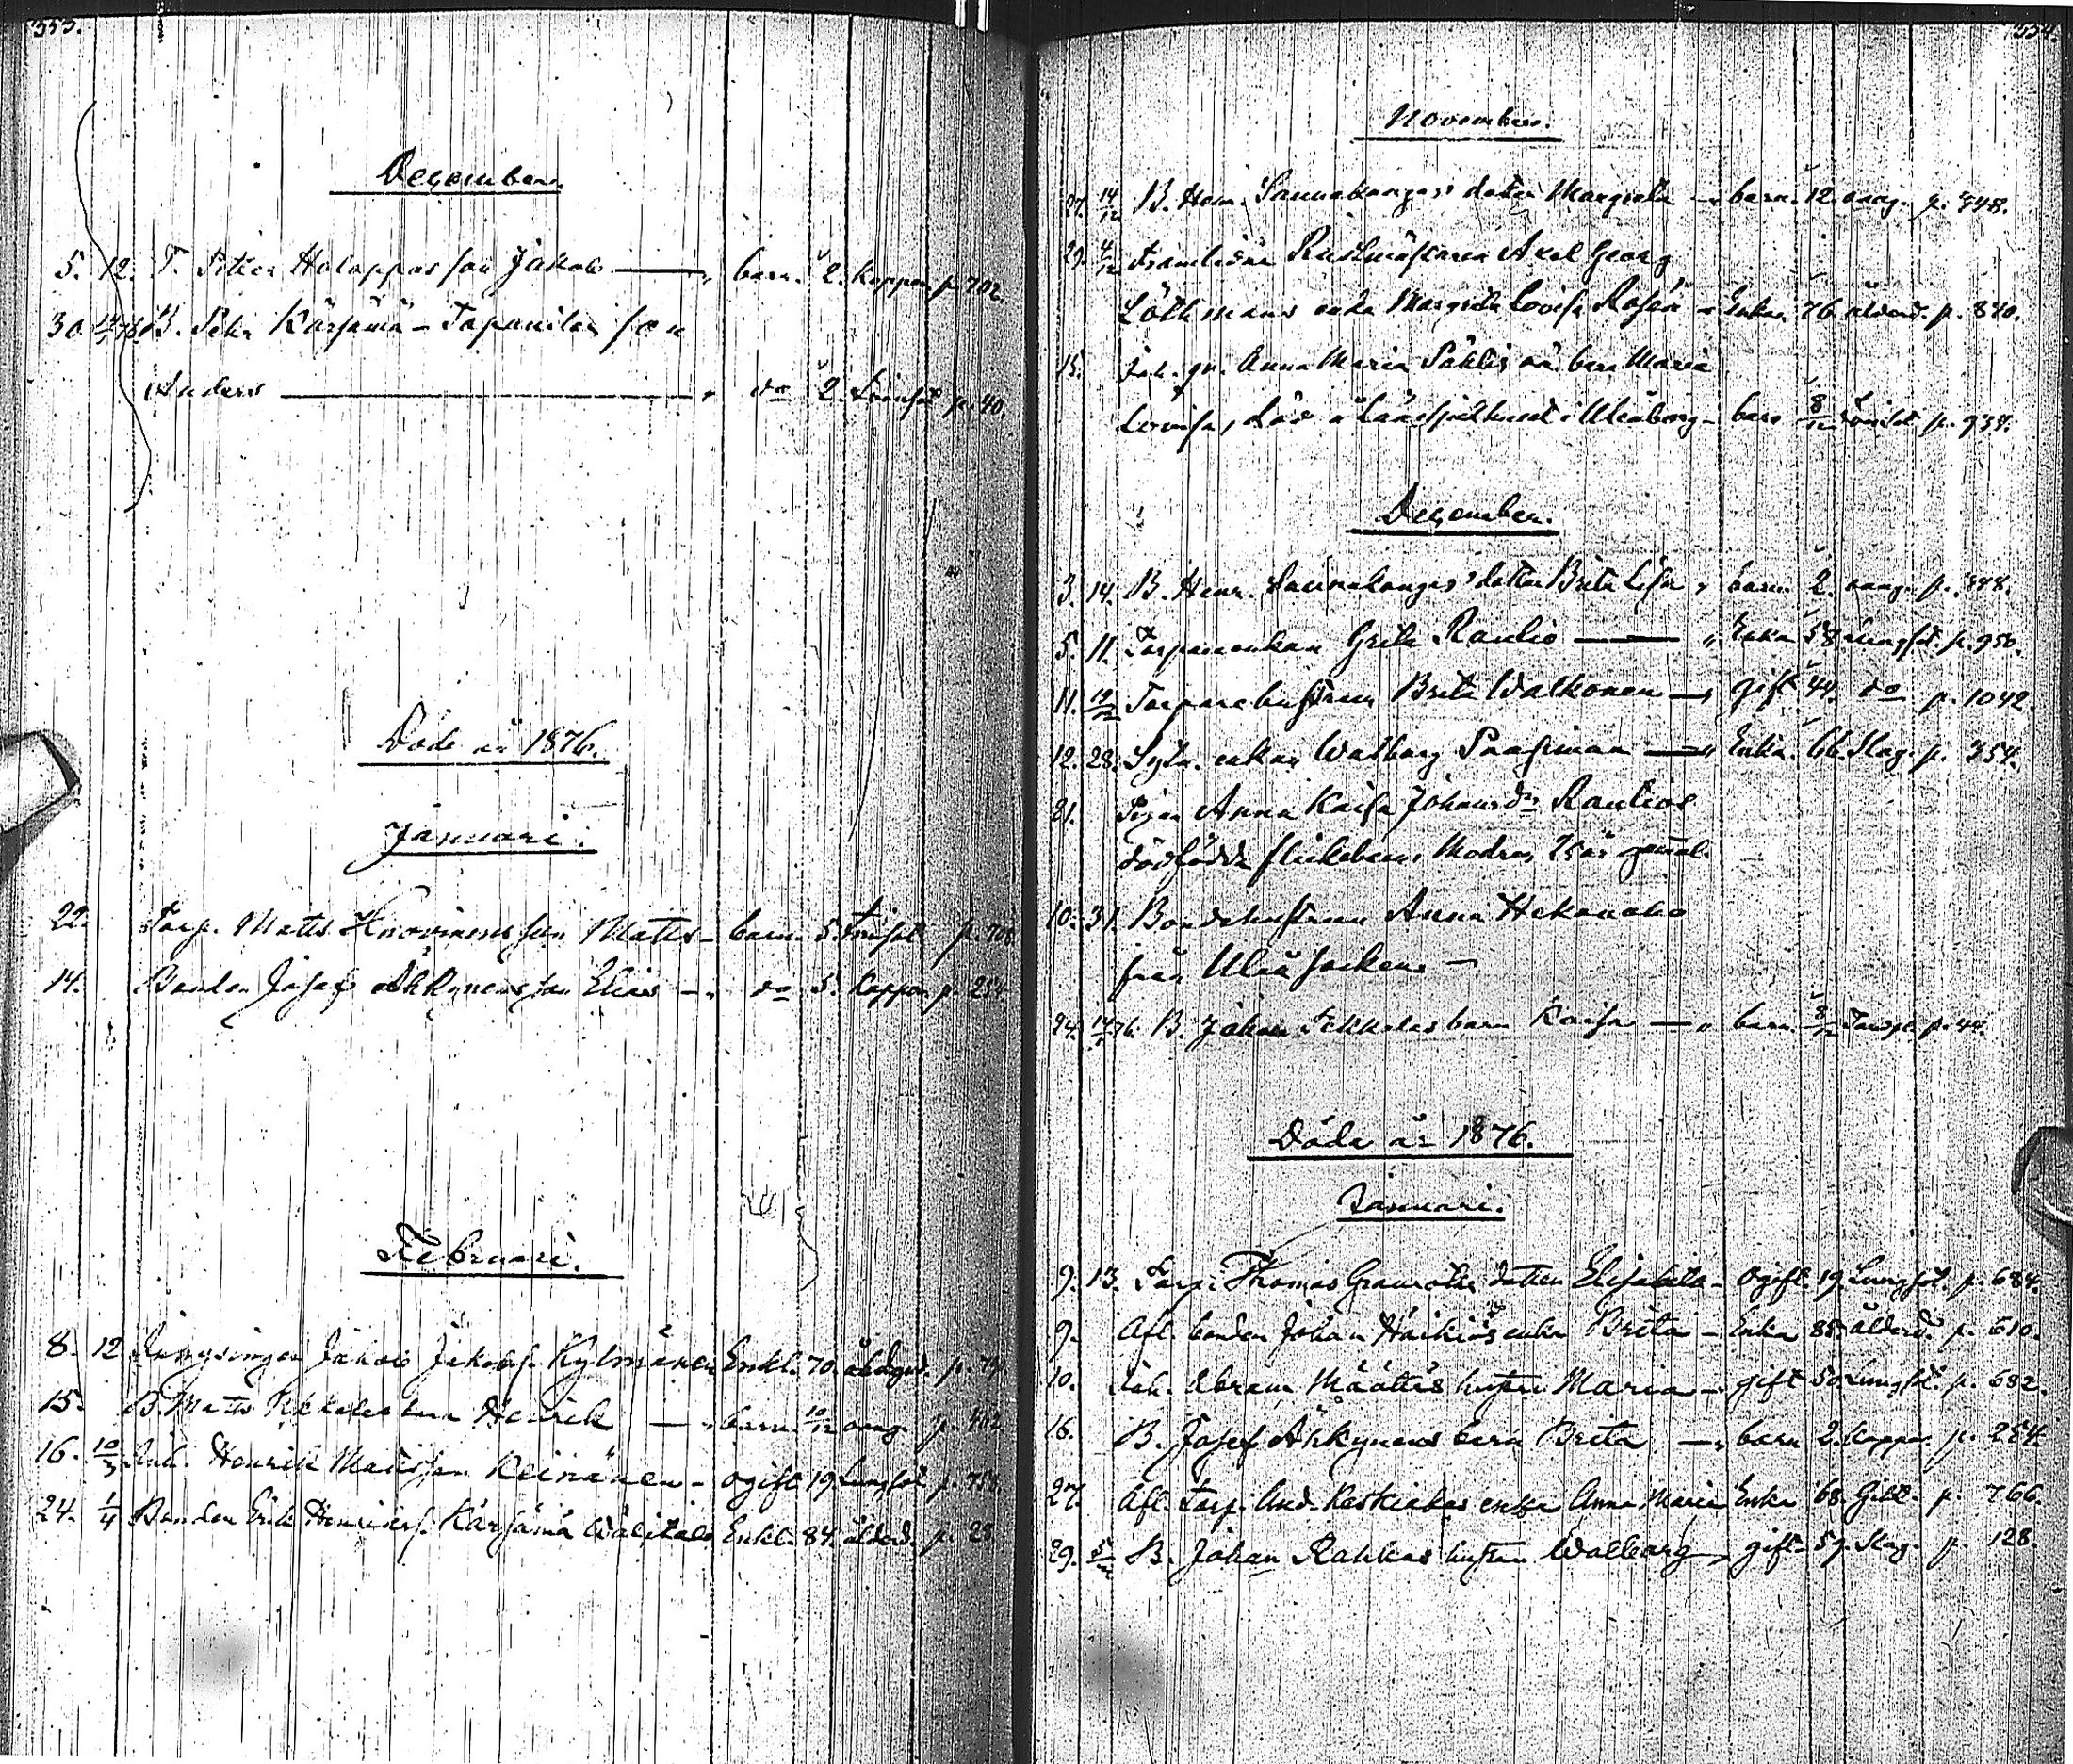 553.
December.
5. 12. T. Petter Holappas son Jakob — barn. 2. koppor p. 702.
30. B. Petr. Kärsämä - Tapanilas son
Anders — do 2. p. 40.
Döde år 1876.
Januari.
22. Torp. Matts son Matts - barn. 5. p. 708
14. Bonden Josef Ähkynens son Elias — do 5. Koppor p. 254
Februari.
8. 12 Jakob Jakobss. Kylmänen Enkl. 70. ålderd. p.
15. B. Matts barn Henrik — barn. 10/12 p. 402
16. 10/3 Inh. Henrik Mattsson Keinänen - ogift 19 Lungsot p. 758
24. 1/4 Bonden Erik Henrikss. Kärsämä Wälitalo Enkl. 84. ålderd. p. 28
554.
November.
27. 14/12 B. Henr. Sannakangas' dotter Margreta - barn. 12. p. 348.
29. 4/12 Framlidne Rustmästaren Axel Georg
Löthmans enka Margreta Lovisa Rosén - Enka 76 ålderd. p. 840.
15. Inh. qv. Anna Maria oä. barn Maria
Lovisa, död å länesjukhuset i Uleåborg - barn 8/12 p. 934.
December.
3. 14. B. Henr. Sannakangas' dotter Brita Lisa, barn. 2. p. 348.
5. 11. Torpareenkan Greta Rautio — Enka 58 Lungsot. p. 950.
11. 19/12 Torparehustrun Brita Walkonen — gift 44. do p. 1042.
12. 28. Sytn. enkan Walborg — Enka. 66. Slag. p. 354.
21. Pigan Anna Kaisa Johansdr Rautios
dödfödda flickebarn, Modren 25 år gammal.
10. 31. Bondehustrun Anna Hekanaho
från Uleå socken —
24. B. Johan barn Kaisa — barn 8/12 p. 44.
Döde år 1876.
Januari.
9. 13. Torp. Thomas dotter Elisabeta - Ogift. 19. Lungsot. p. 684.
9. Afl. bonden Johan Haikiös enka Brita - Enka 85. ålderd. p. 610.
10. Inh. Abram Määttäs hustru Maria - gift 50 Lungsot. p. 682.
16. B. Josef Ähkynens barn Brita — barn 2. Koppor p. 254.
27. Afl. Torp. And. Keskiahos enka Anna Maria Enka 68. p. 766.
29. B. Johan Rahkos hustru Walborg, gift 59. Slag. p. 128.